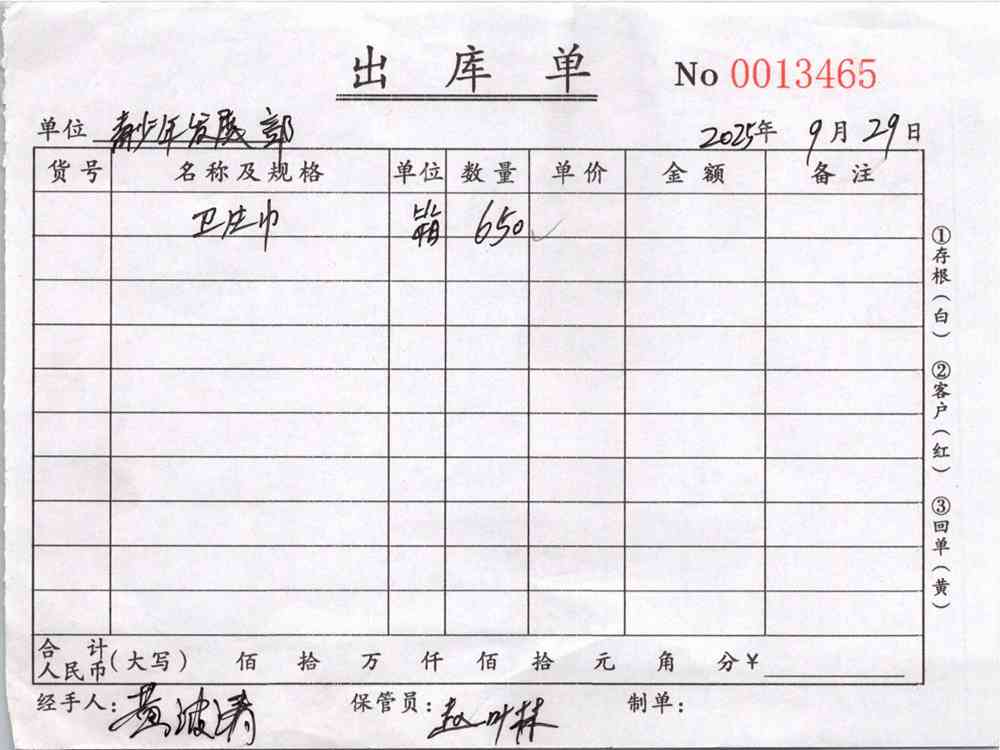 出库单
No 0013465
单位 青少年发展部
2025年 9月 29日
货号 名称及规格 单位 数量 单价 金额 备注
卫生巾 箱 650
①存根(白)
②客户(红)
③回单(黄)
合计人民币(大写) 佰 拾 万 仟 佰 拾 元 角 分 ¥
经手人: 黄波涛 保管员: 赵叶林 制单: